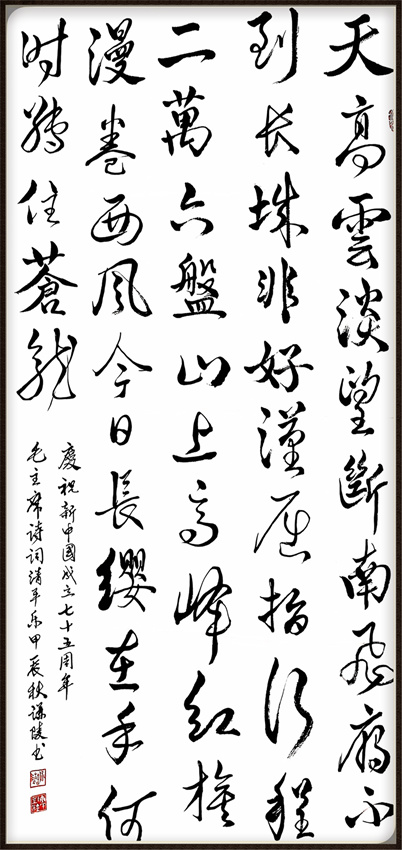 天高雲淡望斷南飛雁不
到长城非好漢屈指行程
二萬六盤山上高峰红旗
漫卷西风今日長纓在手何
时縛住蒼龍
慶祝新中國成立七十五周年
毛主席诗词清平乐甲辰秋謙陵书